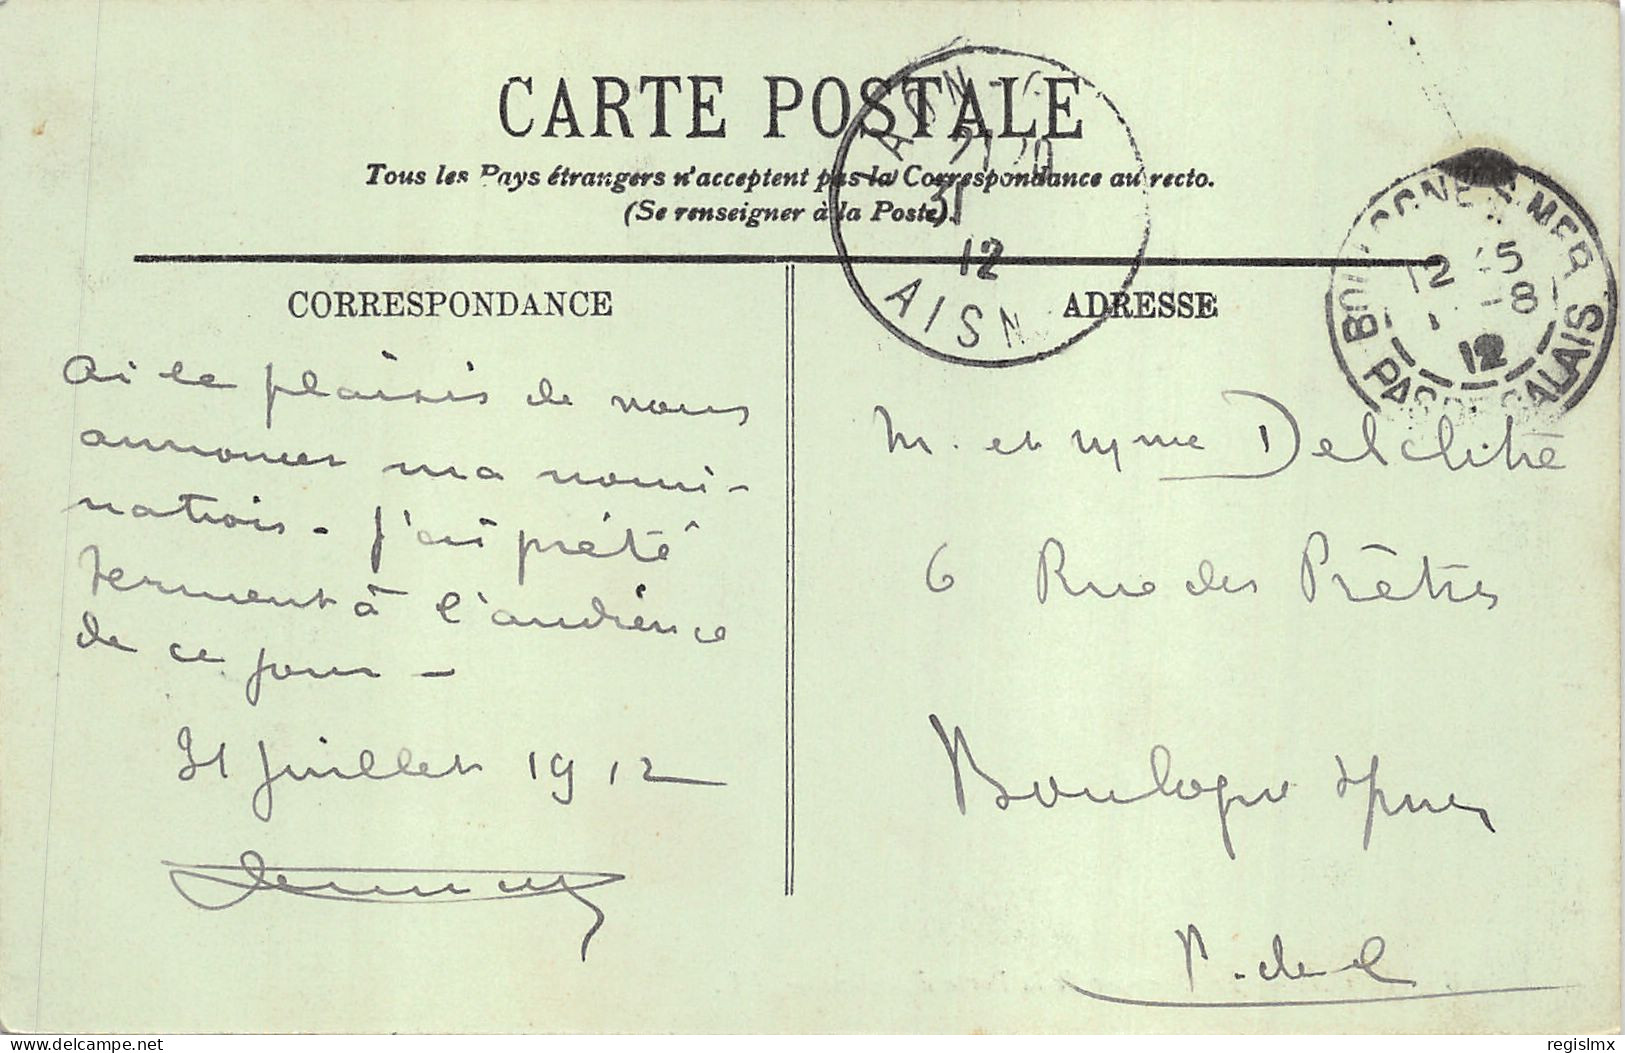 CARTE POSTALE
Tous les Pays étrangers n'acceptent pas la Correspondance au recto.
(Se renseigner à la Poste).
LAON
31
12
AISN
BOULOGNE S MER
12 15
-8
12
PAS DE CALAIS
CORRESPONDANCE
Ai le plaisir de vous
annoncer ma nomi-
nation - J'ai prêté
serment à l'audience
de ce jour -
31 Juillet 1912
ADRESSE
M. et Mme Delclitte
6 Rue des Prêtres
Boulogne s/mer
P. de C
delcampe.net
regislmx